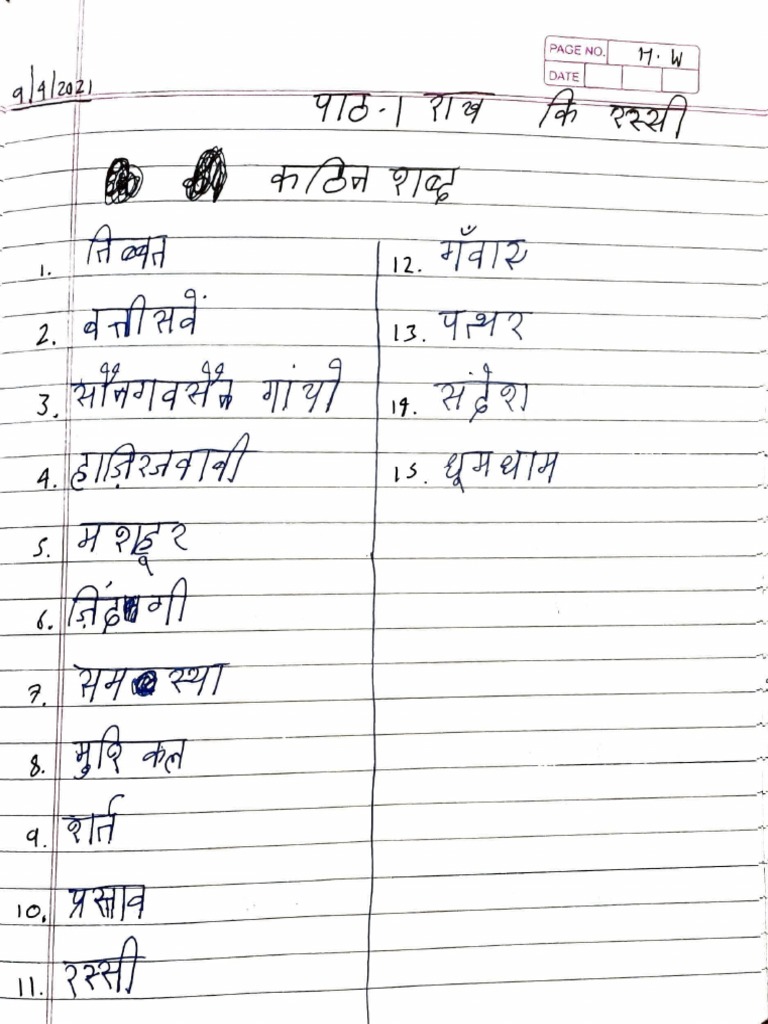 PAGE NO. H.W
DATE
9/4/2021
पाठ-1 राख कि रस्सी
कठिन शब्द
1. तिब्बत
2. बत्तीसवें
3. सौनगवसैन गांपो
4. हाज़िरजवाबी
5. मशहूर
6. ज़िंदगी
7. समस्या
8. मुश्किल
9. शर्त
10. प्रस्ताव
11. रस्सी
12. गँवार
13. पत्थर
14. संदेश
15. धूमधाम